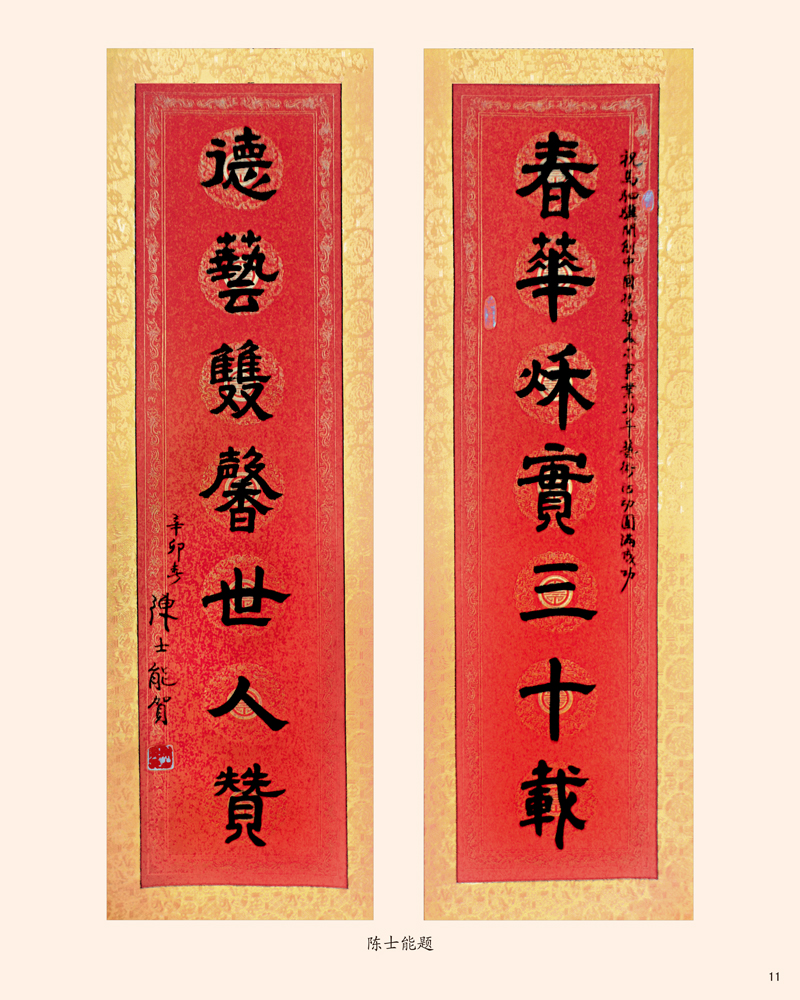 祝馬開創中國根藝美术事業30年藝術活动圓滿成功
春華秌實三十載
德藝雙馨世人贊
辛卯春
陳士能賀
陈士能题
11